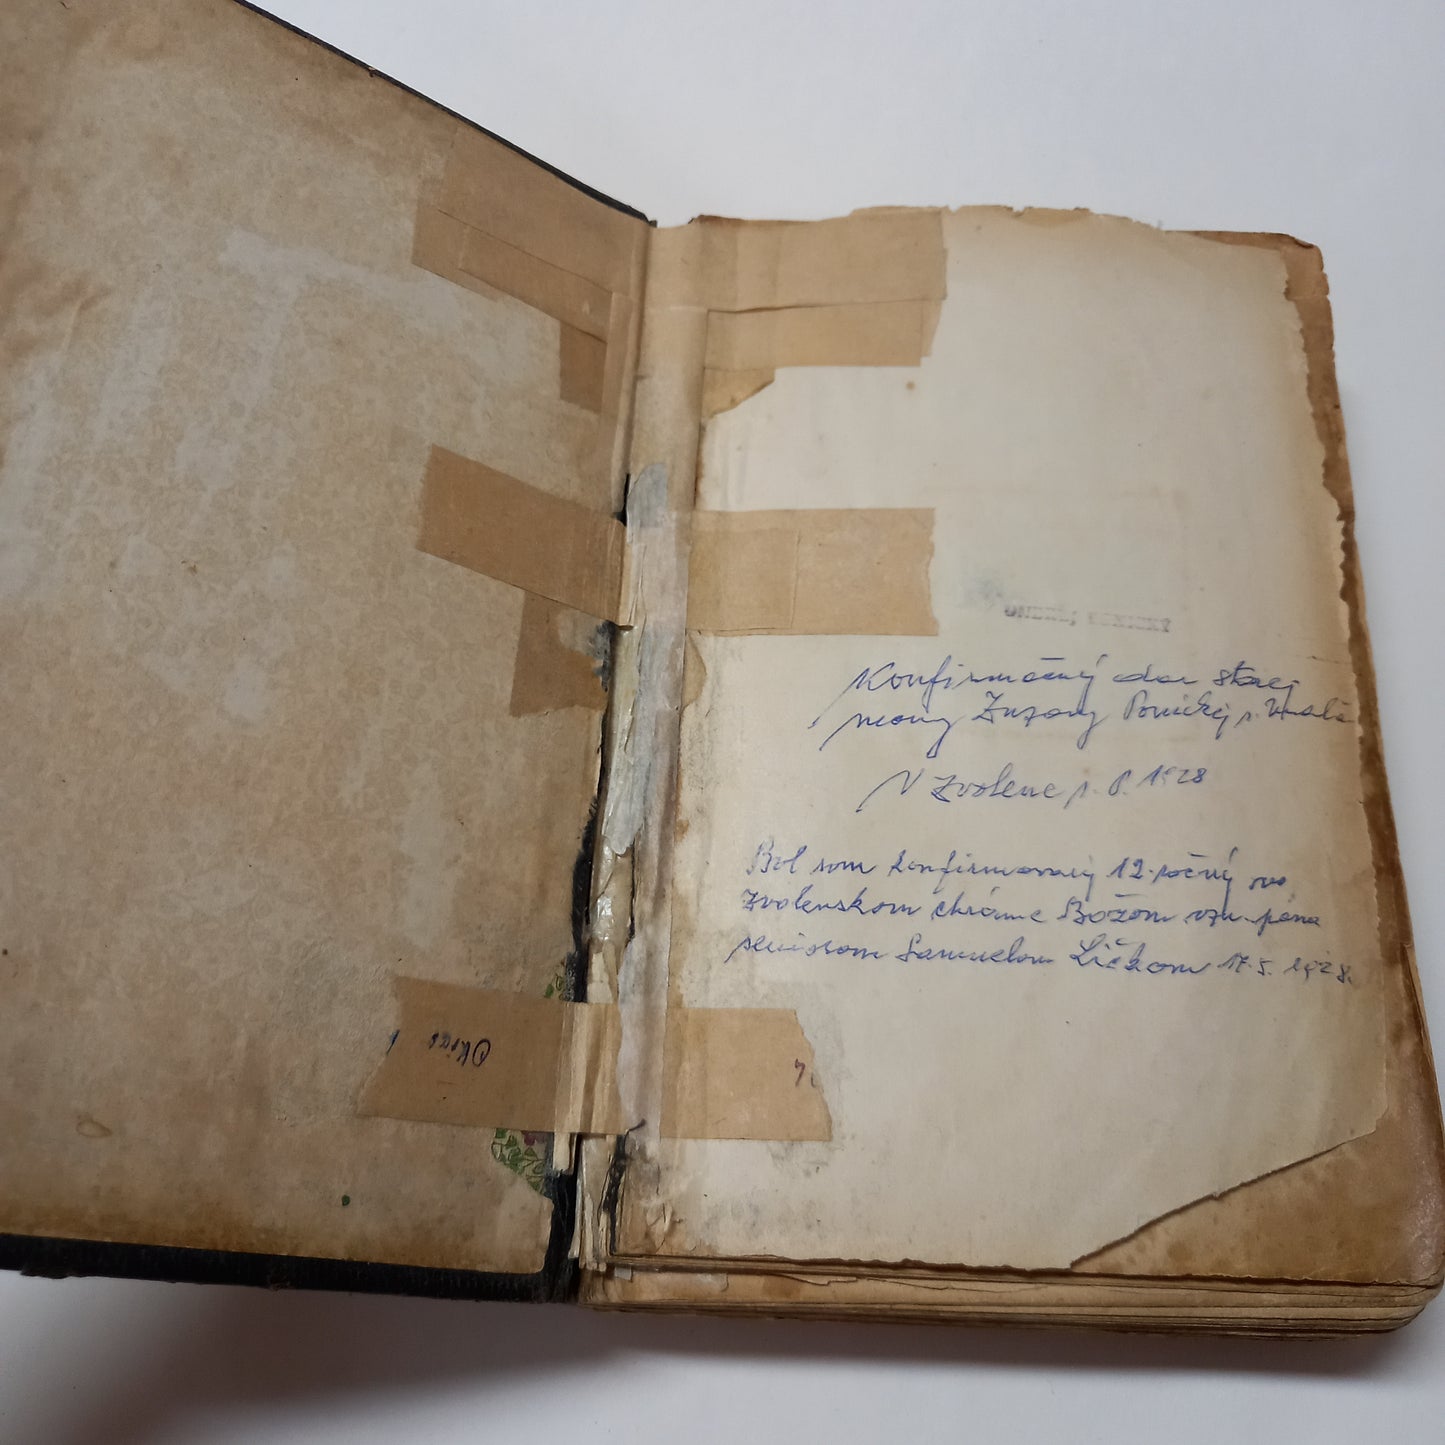 ONDREJ PONICKÝ
Konfirmačný dar starej
mamy Zuzany Ponickej r.
V Zvolene r. P. 1928
Bol som konfirmovaný 12-ročný vo
Zvolenskom chráme Božom vzn. pána
seniorom Samuelom Ličkom 17.5. 1928.